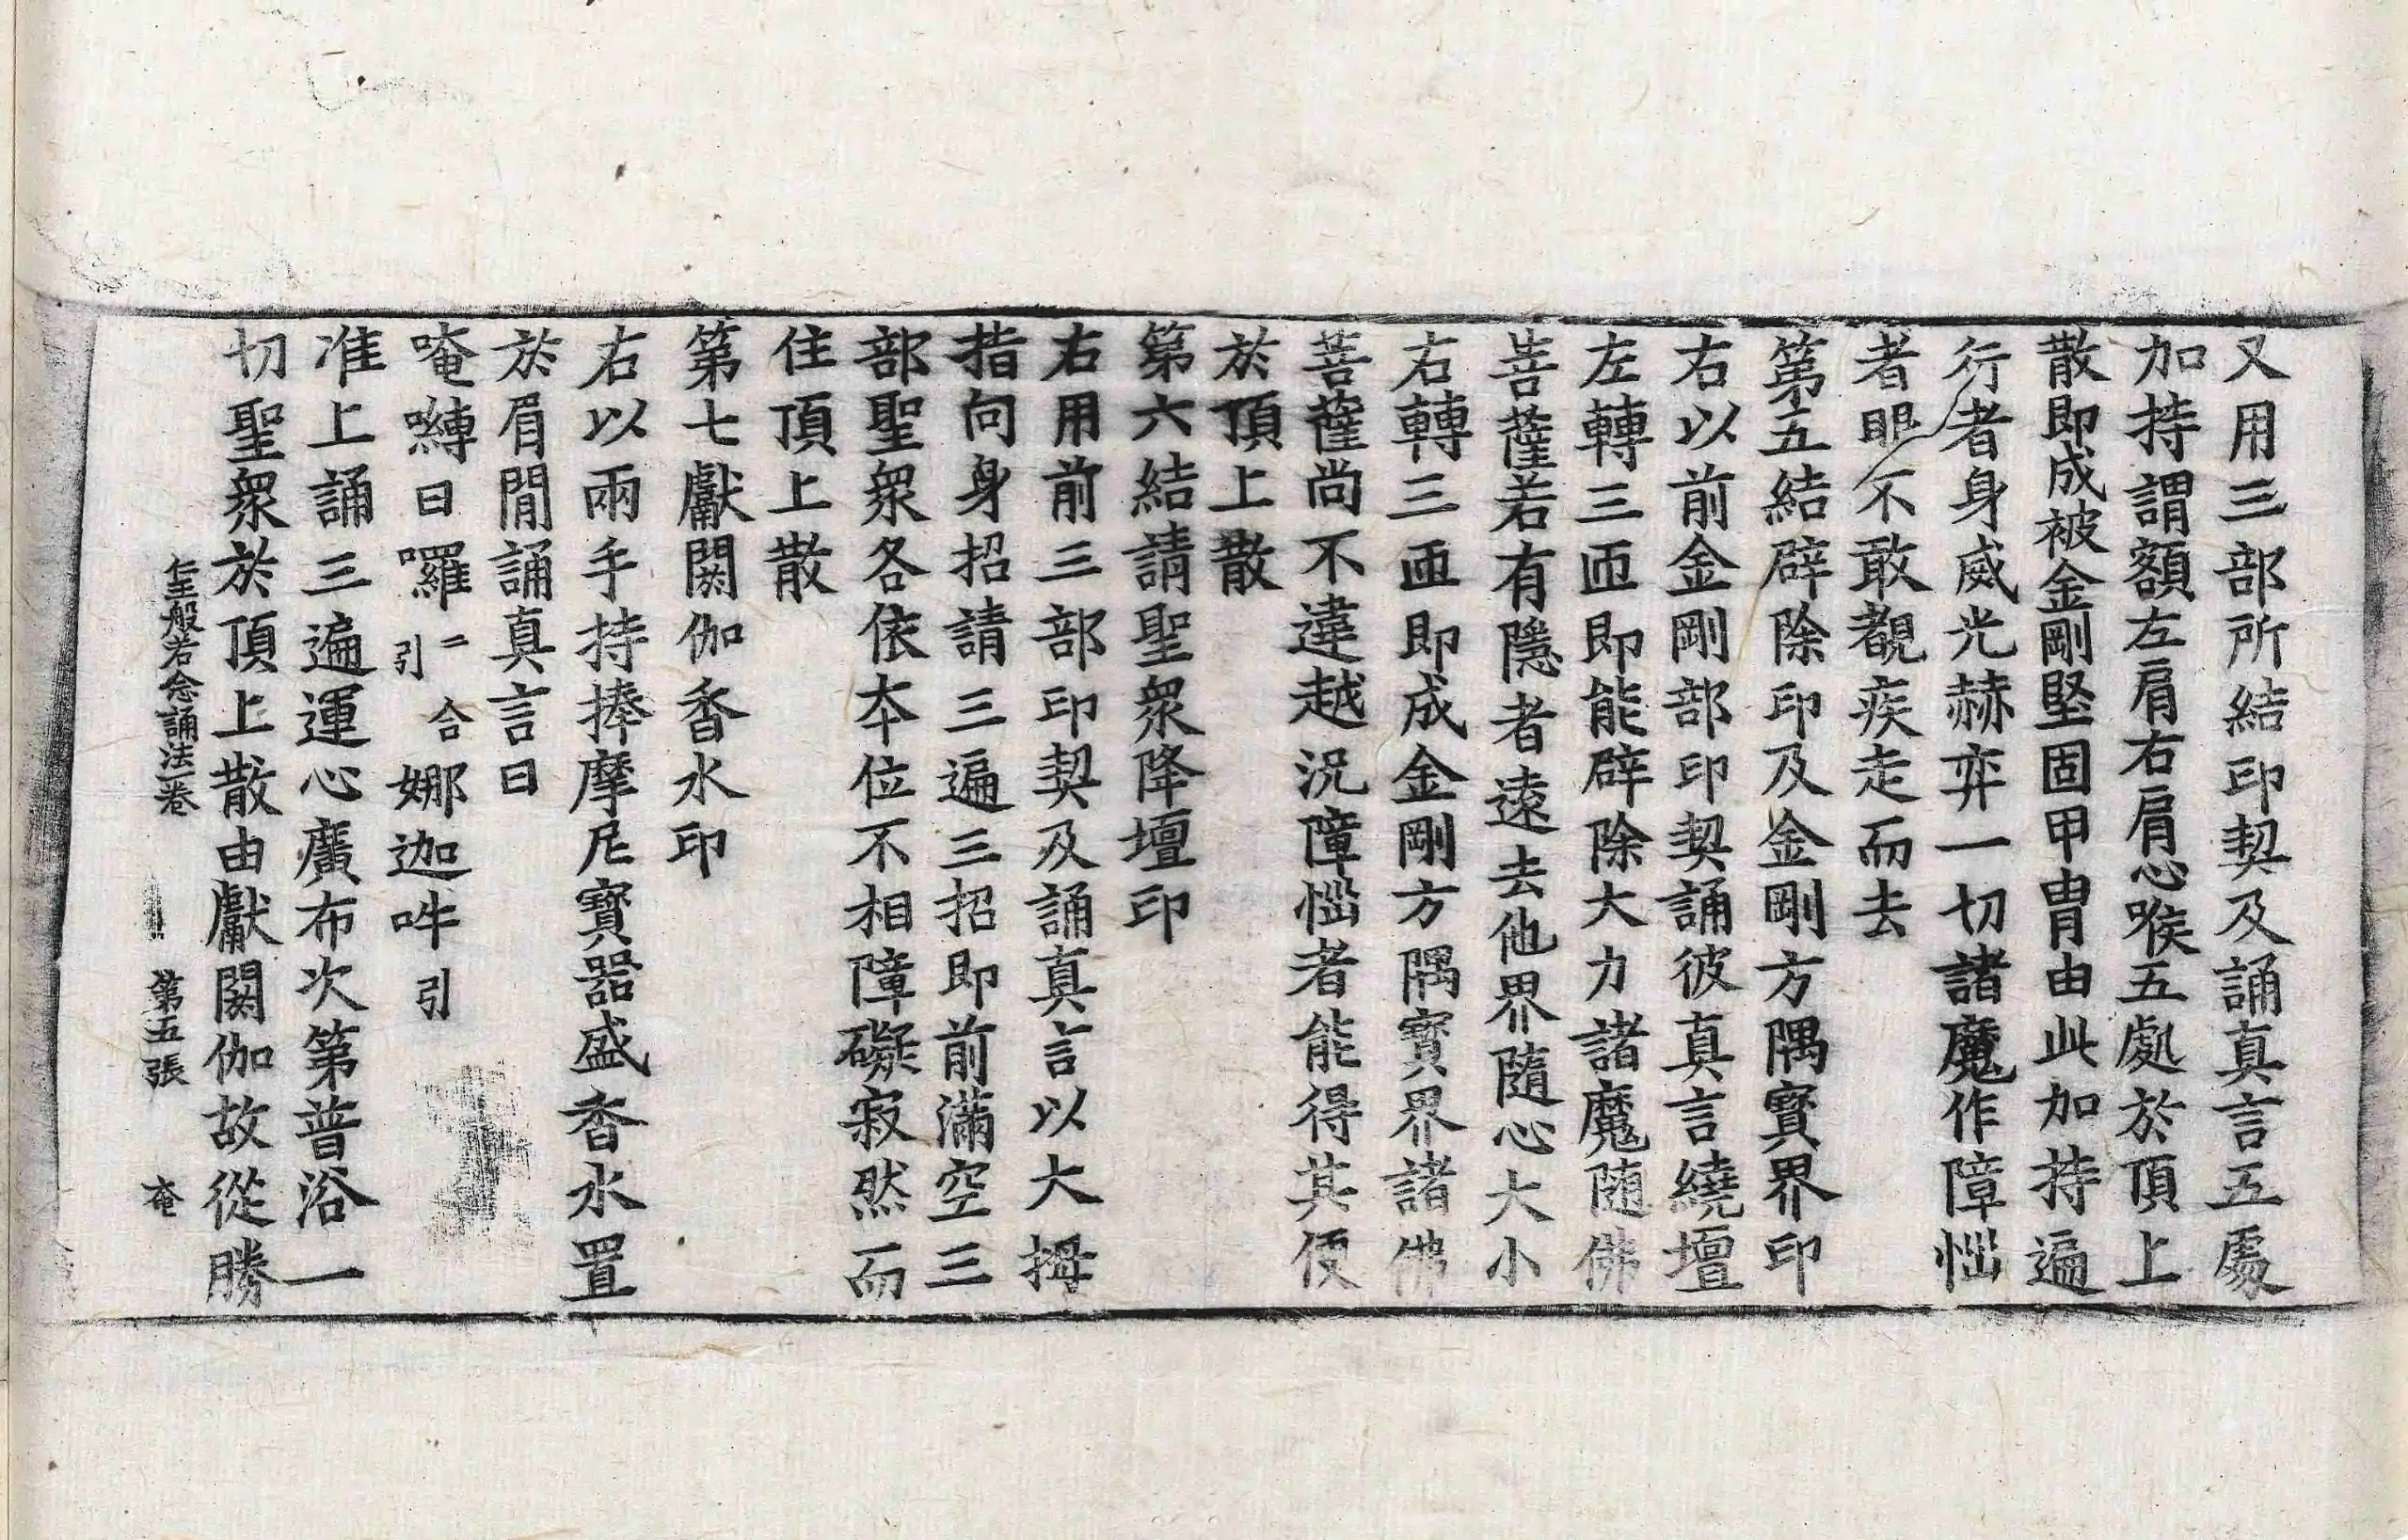 又用三部所結印契及誦真言五處
加持謂額左肩右肩心喉五處於頂上
散即成被金剛堅固甲冑由此加持遍
行者身威光赫弈一切諸魔作障惱
者眼不敢覩疾走而去
第五結辟除印及金剛方隅寶界印
右以前金剛部印契誦彼真言繞壇
左轉三匝即能辟除大力諸魔随佛
菩薩若有隱者遠去他界隨心大小
右轉三匝即成金剛方隅寶界諸佛
菩薩尚不違越況障惱者能得其便
於頂上散
第六結請聖衆降壇印
右用前三部印契及誦真言以大拇
指向身招請三遍三招即前滿空三
部聖衆各依本位不相障礙寂然而
住頂上散
第七獻閼伽香水印
右以兩手持捧摩尼寶器盛香水置
於眉間誦真言曰
唵嚩日囉二合引娜迦吽引
准上誦三遍運心廣布次第普浴一
切聖衆於頂上散由獻閼伽故從勝
仁王般若念誦法一卷 第五張 奄